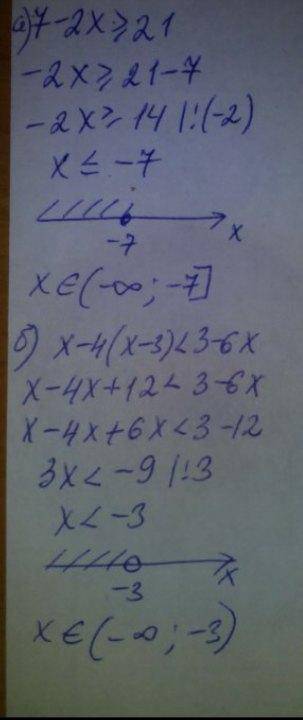 а) 7-2x≥21
-2x≥21-7
-2x≥14 |:(-2)
x≤-7
-7 x
x∈(-∞; -7]
б) x-4(x-3)<3-6x
x-4x+12<3-6x
x-4x+6x<3-12
3x<-9 |:3
x<-3
-3 x
x∈(-∞; -3)